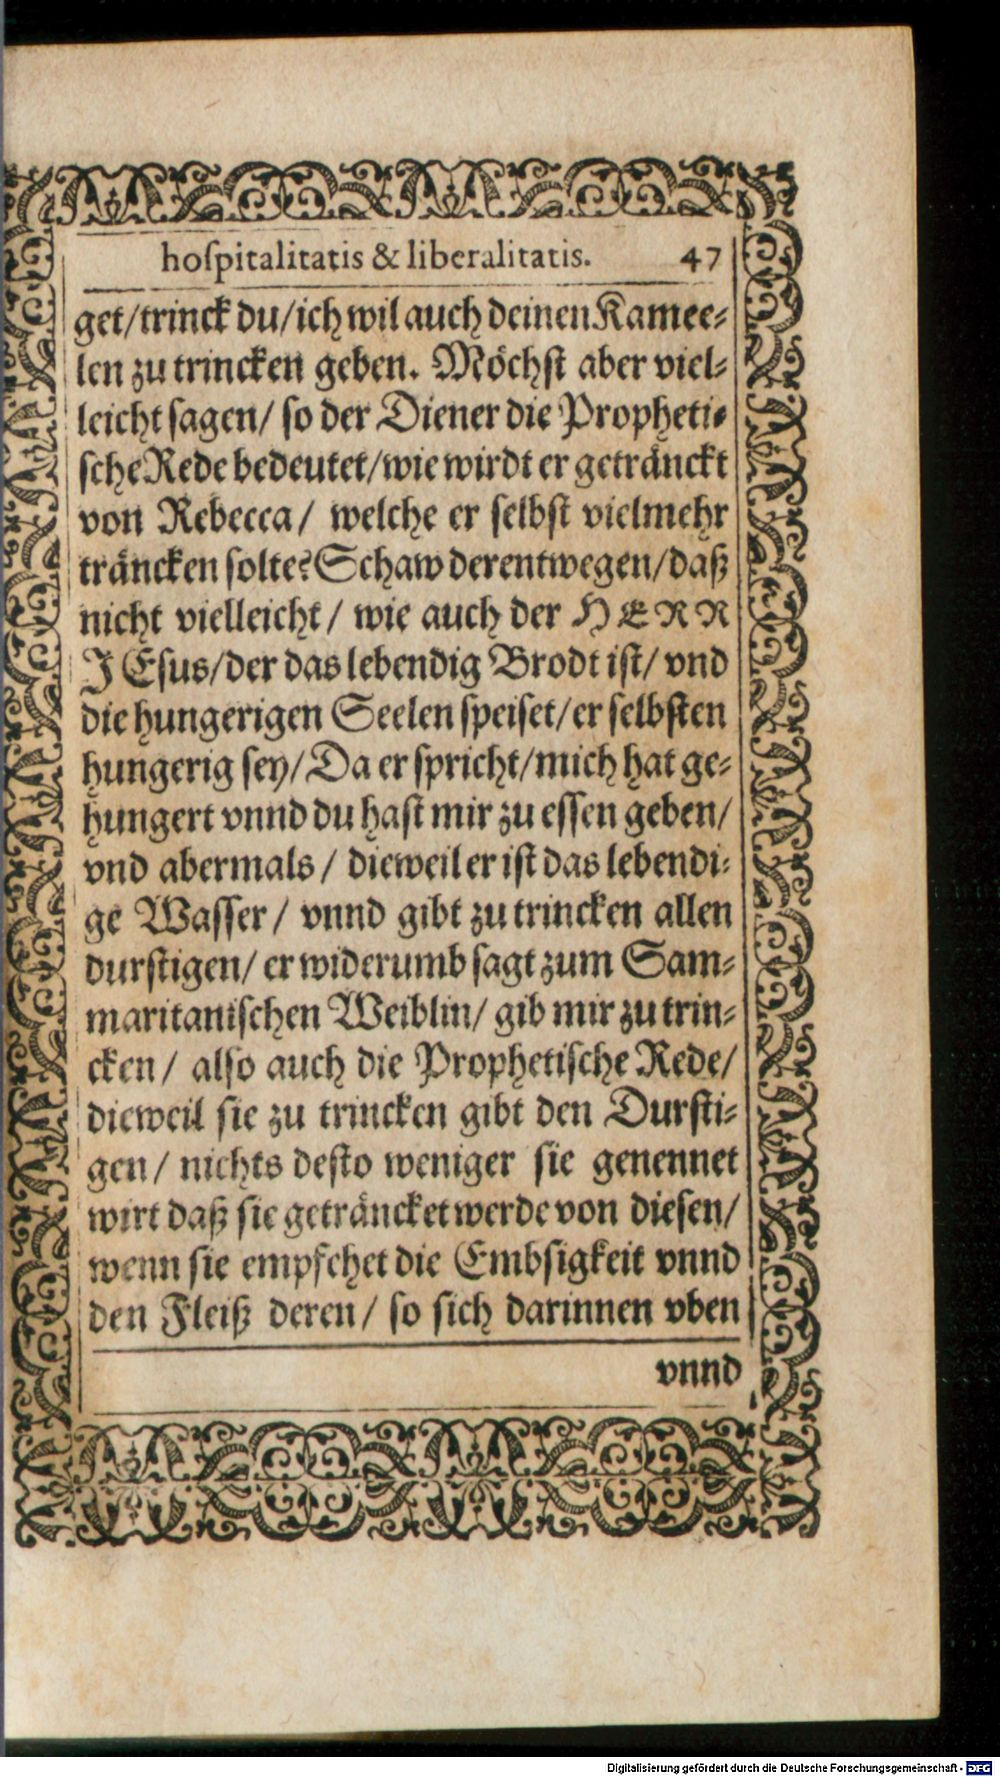 hoſpitalitatis & liberalitatis. 47
get/trinck du/ich wil auch deinen Kamee⸗
len zu trincken geben. Möchſt aber viel⸗
leicht ſagen/ ſo der Diener die Propheti⸗
ſche Rede bedeutet/wie wirdt er getränckt
von Rebecca/ welche er ſelbſt vielmehr
träncken ſolte? Schaw derentwegen/daß
nicht vielleicht/ wie auch der HERR
JEſus/der das lebendig Brodt iſt/ vnd
die hungerigen Seelen ſpeiſet/er ſelbſten
hungerig ſey/Da er ſpricht/mich hat ge⸗
hungert vnnd du haſt mir zu eſſen geben/
vnd abermals/ dieweil er iſt das lebendi⸗
ge Waſſer/ vnnd gibt zu trincken allen
durſtigen/ er widerumb ſagt zum Sam⸗
maritaniſchen Weiblin/ gib mir zu trin⸗
cken/ alſo auch die Prophetiſche Rede/
dieweil ſie zu trincken gibt den Durſti⸗
gen/ nichts deſto weniger ſie genennet
wirt daß ſie geträncket werde von dieſen/
wenn ſie empfehet die Embſigkeit vnnd
den Fleiß deren/ ſo ſich darinnen vben
vnnd
Digitalisierung gefördert durch die Deutsche Forschungsgemeinschaft - DFG